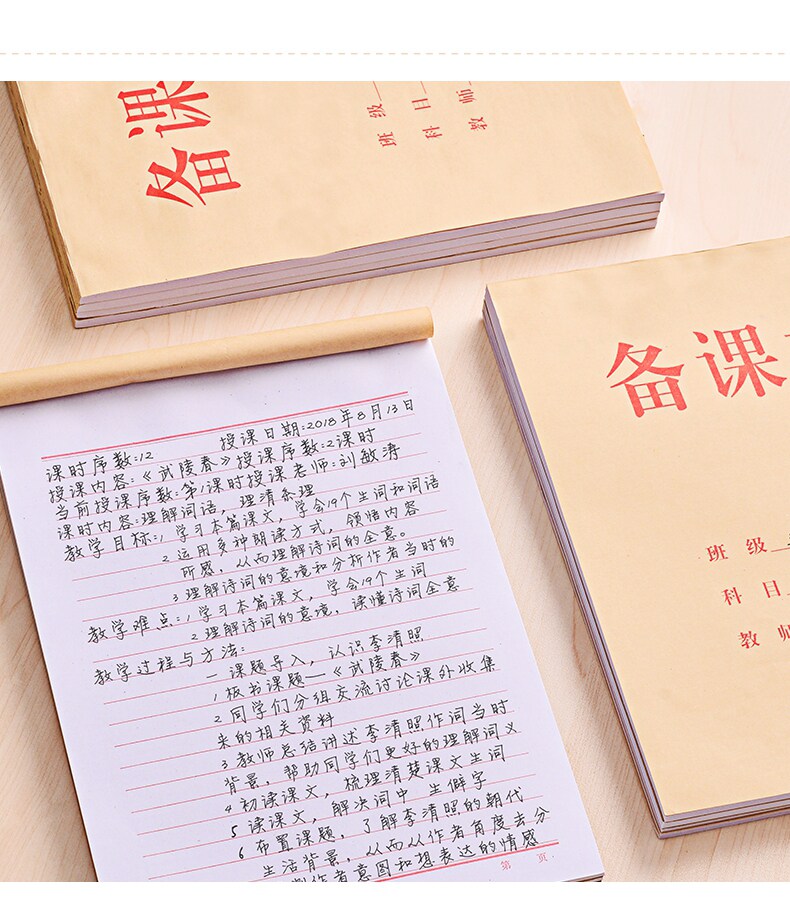 备课
班级
科目
教师
备课
班级
科目
教师
课时序数:12 授课日期:2018年8月13日
授课内容:《武陵春》授课序数:2课时
当前授课序数:第1课时授课老师:刘敏涛
课时内容:理解词语,理清条理
教学目标:1 学习本篇课文,学会19个生词和词语
2 运用多种朗读方式,领悟内容
所感,从而理解诗词的全意。
3 理解诗词的意境和分析作者当时的
教学难点:1 学习本篇课文,学会19个生词
2 理解诗词的意境,读懂诗词全意
教学过程与方法:
一 课题导入,认识李清照
1 板书课题—《武陵春》
2 同学们分组交流讨论课外收集
来的相关资料
3 教师总结讲述李清照作词当时
背景,帮助同学们更好的理解词义
4 初读课文,梳理清楚课文生词
5 读课文,解决词中生僻字
6 布置课题,了解李清照的朝代
生活背景,从而从作者角度去分
作者意图和想表达的情感
第 页